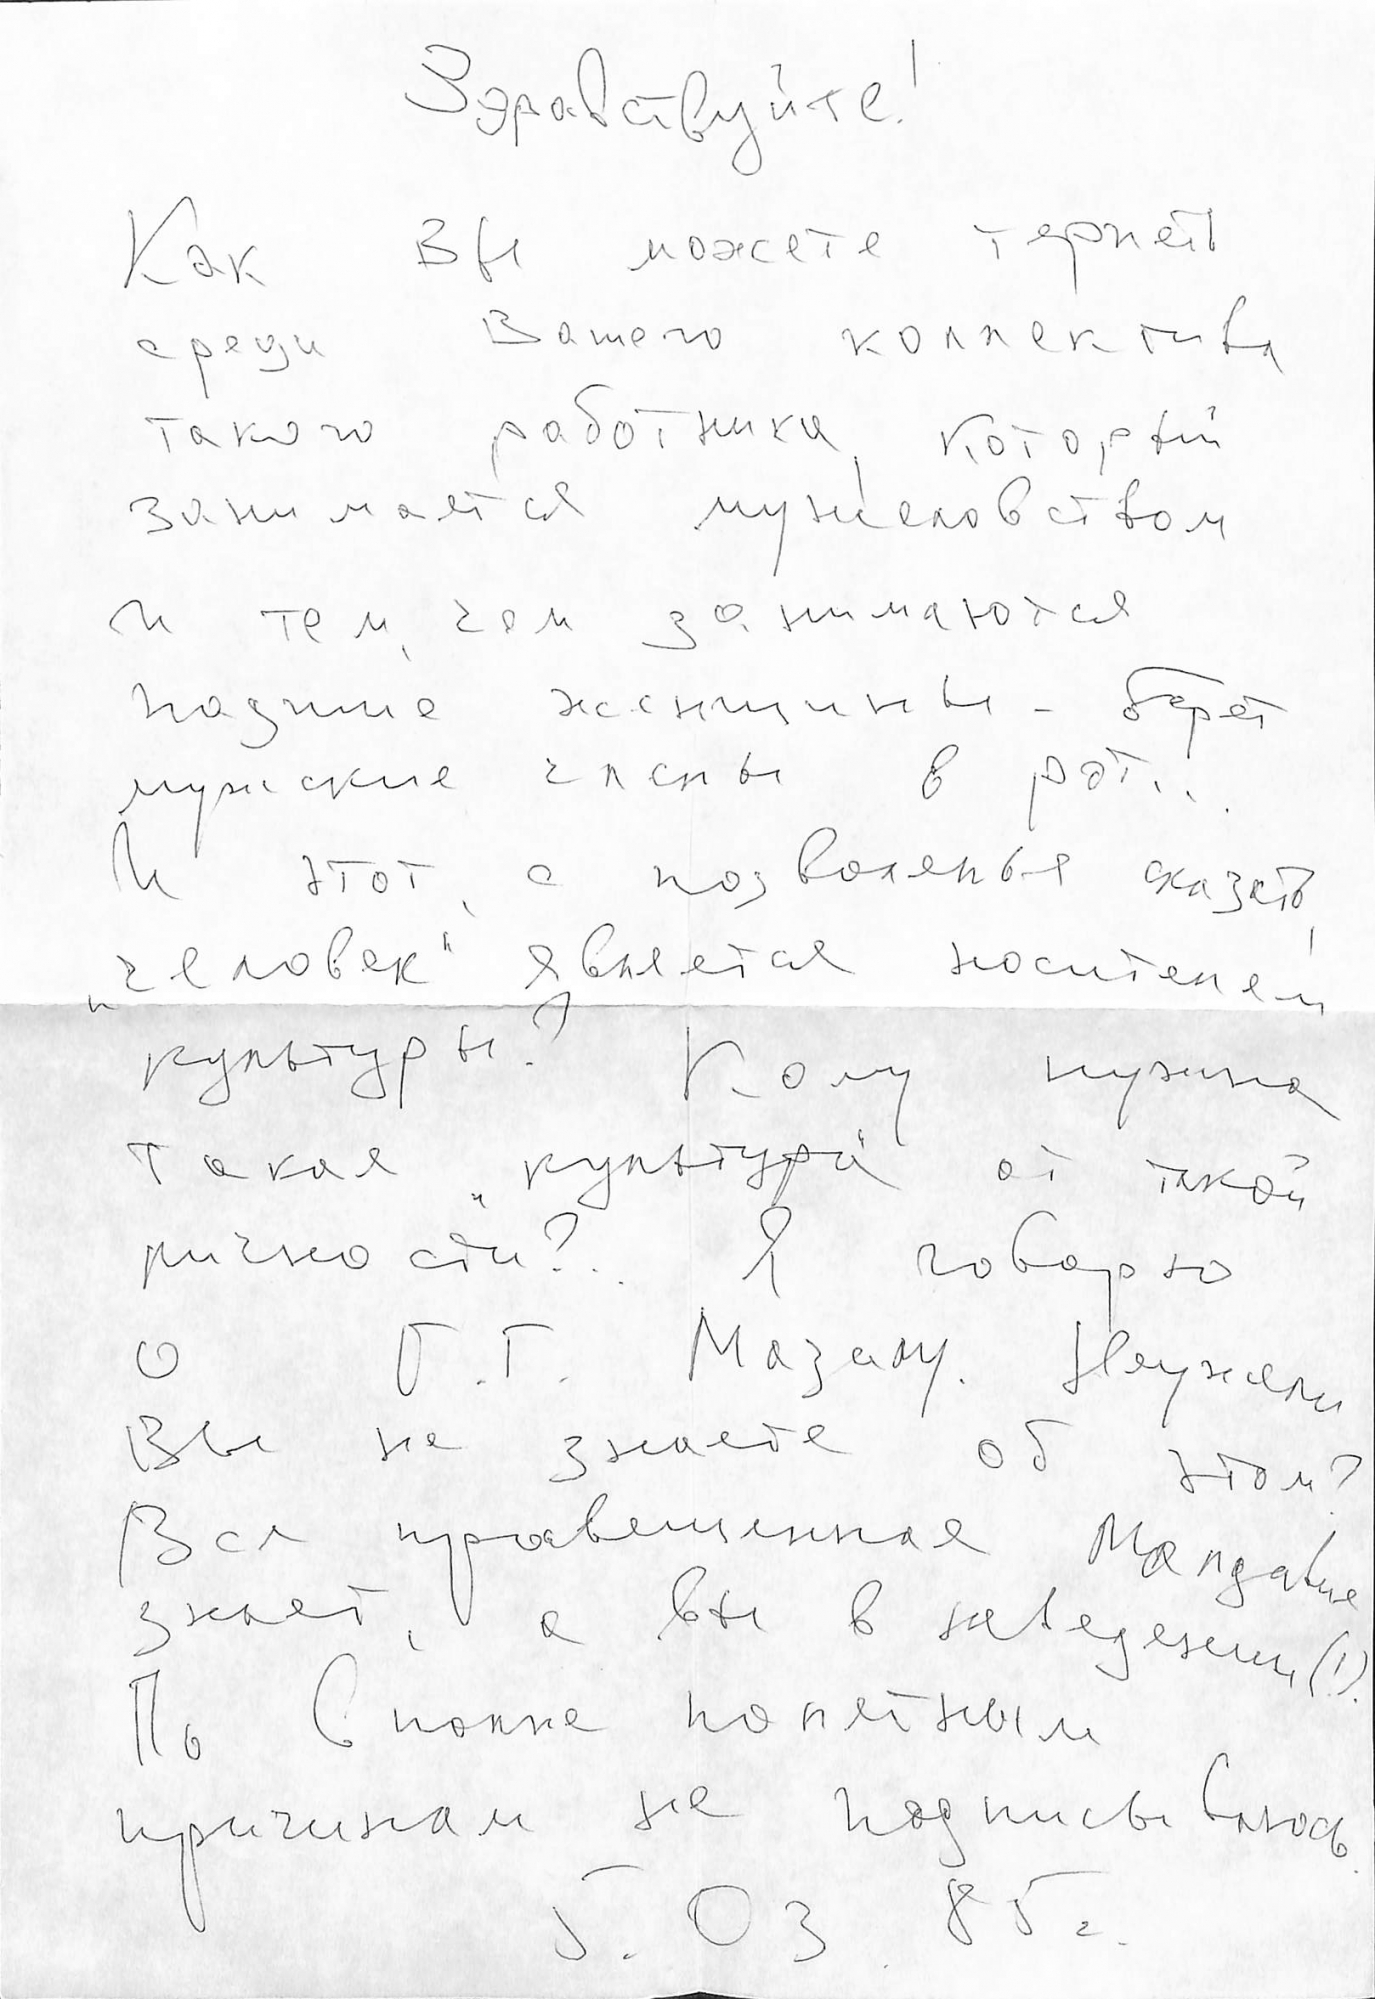 Здравствуйте!
Как Вы можете терпеть
среди Вашего коллектива
такого работника, который
занимается мужеловством
и тем, чем занимаются
падшие женщины - берет
мужские члены в рот...
И этот, с позволенья сказать,
„человек" является носителем
культуры? Кому нужна
такая „культура" от такой
личности?.. Я говорю
о Г.Г. Мазилу. Неужели
Вы не знаете об этом?
Вся просвещенная Молдавия
знает, а вы в неведении (!).
По вполне понятным
причинам не подписываюсь.
5. 03 85г.